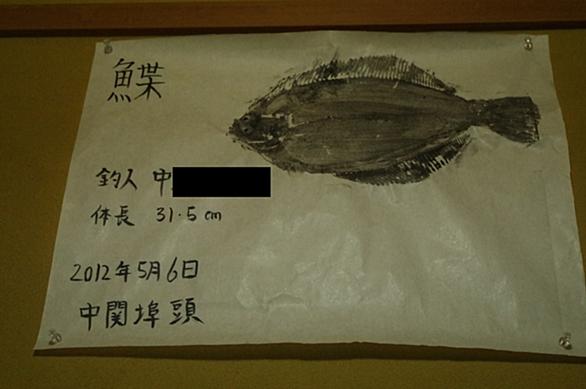 鰈
釣人 中
体長 31.5cm
2012年5月6日
中関埠頭